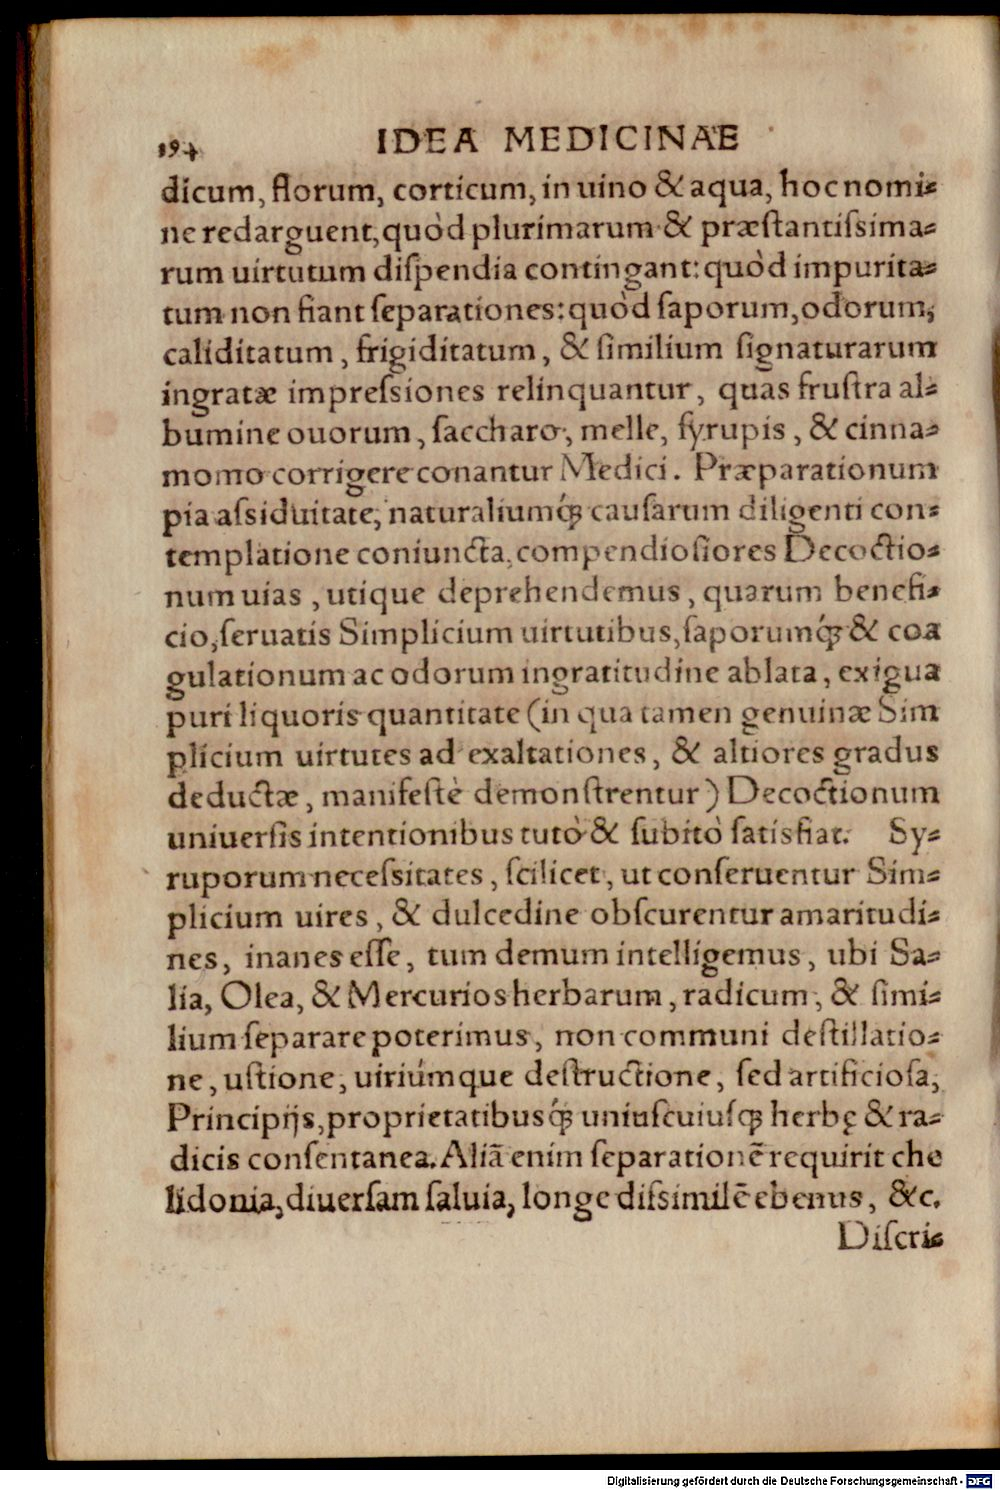 194 IDEA MEDICINAE
dicum, florum, corticum, in uino & aqua, hoc nomi-
ne redarguent, quòd plurimarum & præstantiſsima-
rum uirtutum diſpendia contingant: quòd impurita-
tum non fiant ſeparationes: quòd ſaporum, odorum,
caliditatum, frigiditatum, & ſimilium ſignaturarum
ingratæ impreſsiones relinquantur, quas fruſtra al-
bumine ouorum, ſaccharo, melle, ſyrupis, & cinna-
momo corrigere conantur Medici. Præparationum
pia aſsiduitate, naturaliumq́ꝫ cauſarum diligenti con-
templatione coniuncta, compendioſiores Decoctio-
num uias, utique deprehendemus, quarum benefi-
cio, ſeruatis Simplicium uirtutibus, ſaporumq́ꝫ & coa
gulationum ac odorum ingratitudine ablata, exigua
puri liquoris quantitate (in qua tamen genuinæ Sim
plicium uirtutes ad exaltationes, & altiores gradus
deductæ, manifeſtè demonſtrentur) Decoctionum
uniuerſis intentionibus tutò & ſubitò ſatisfiat. Sy-
ruporum neceſsitates, ſcilicet, ut conſeruentur Sim-
plicium uires, & dulcedine obſcurentur amaritudi-
nes, inanes eſſe, tum demum intelligemus, ubi Sa-
lia, Olea, & Mercurios herbarum, radicum, & ſimi-
lium ſeparare poterimus, non communi deſtillatio-
ne, uſtione, uiriúmque deſtructione, ſed artificioſa,
Principijs, proprietatibusq́ꝫ uniuſcuiuſqꝫ herbę & ra-
dicis conſentanea. Aliā enim ſeparationē requirit che
lidonia, diuerſam ſaluia, longe diſsimilē ebenus, &c.
Diſcri-
Digitalisierung gefördert durch die Deutsche Forschungsgemeinschaft - DFG